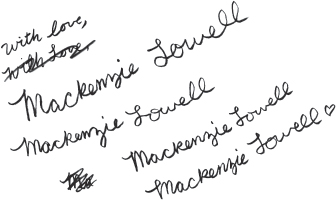 with love,
with love,
Mackenzie Lowell
Mackenzie Lowell
Mackenzie Lowell
Mackenzie Lowell ♡